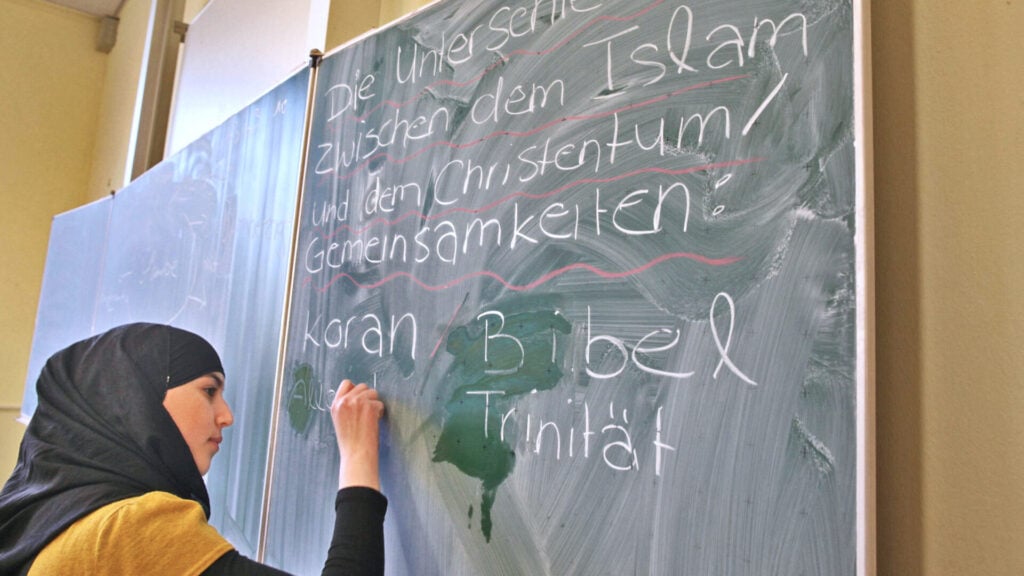 Die
zwischen dem Islam
und dem Christentum /
Gemeinsamkeiten:
Koran / Bibel
Trinität